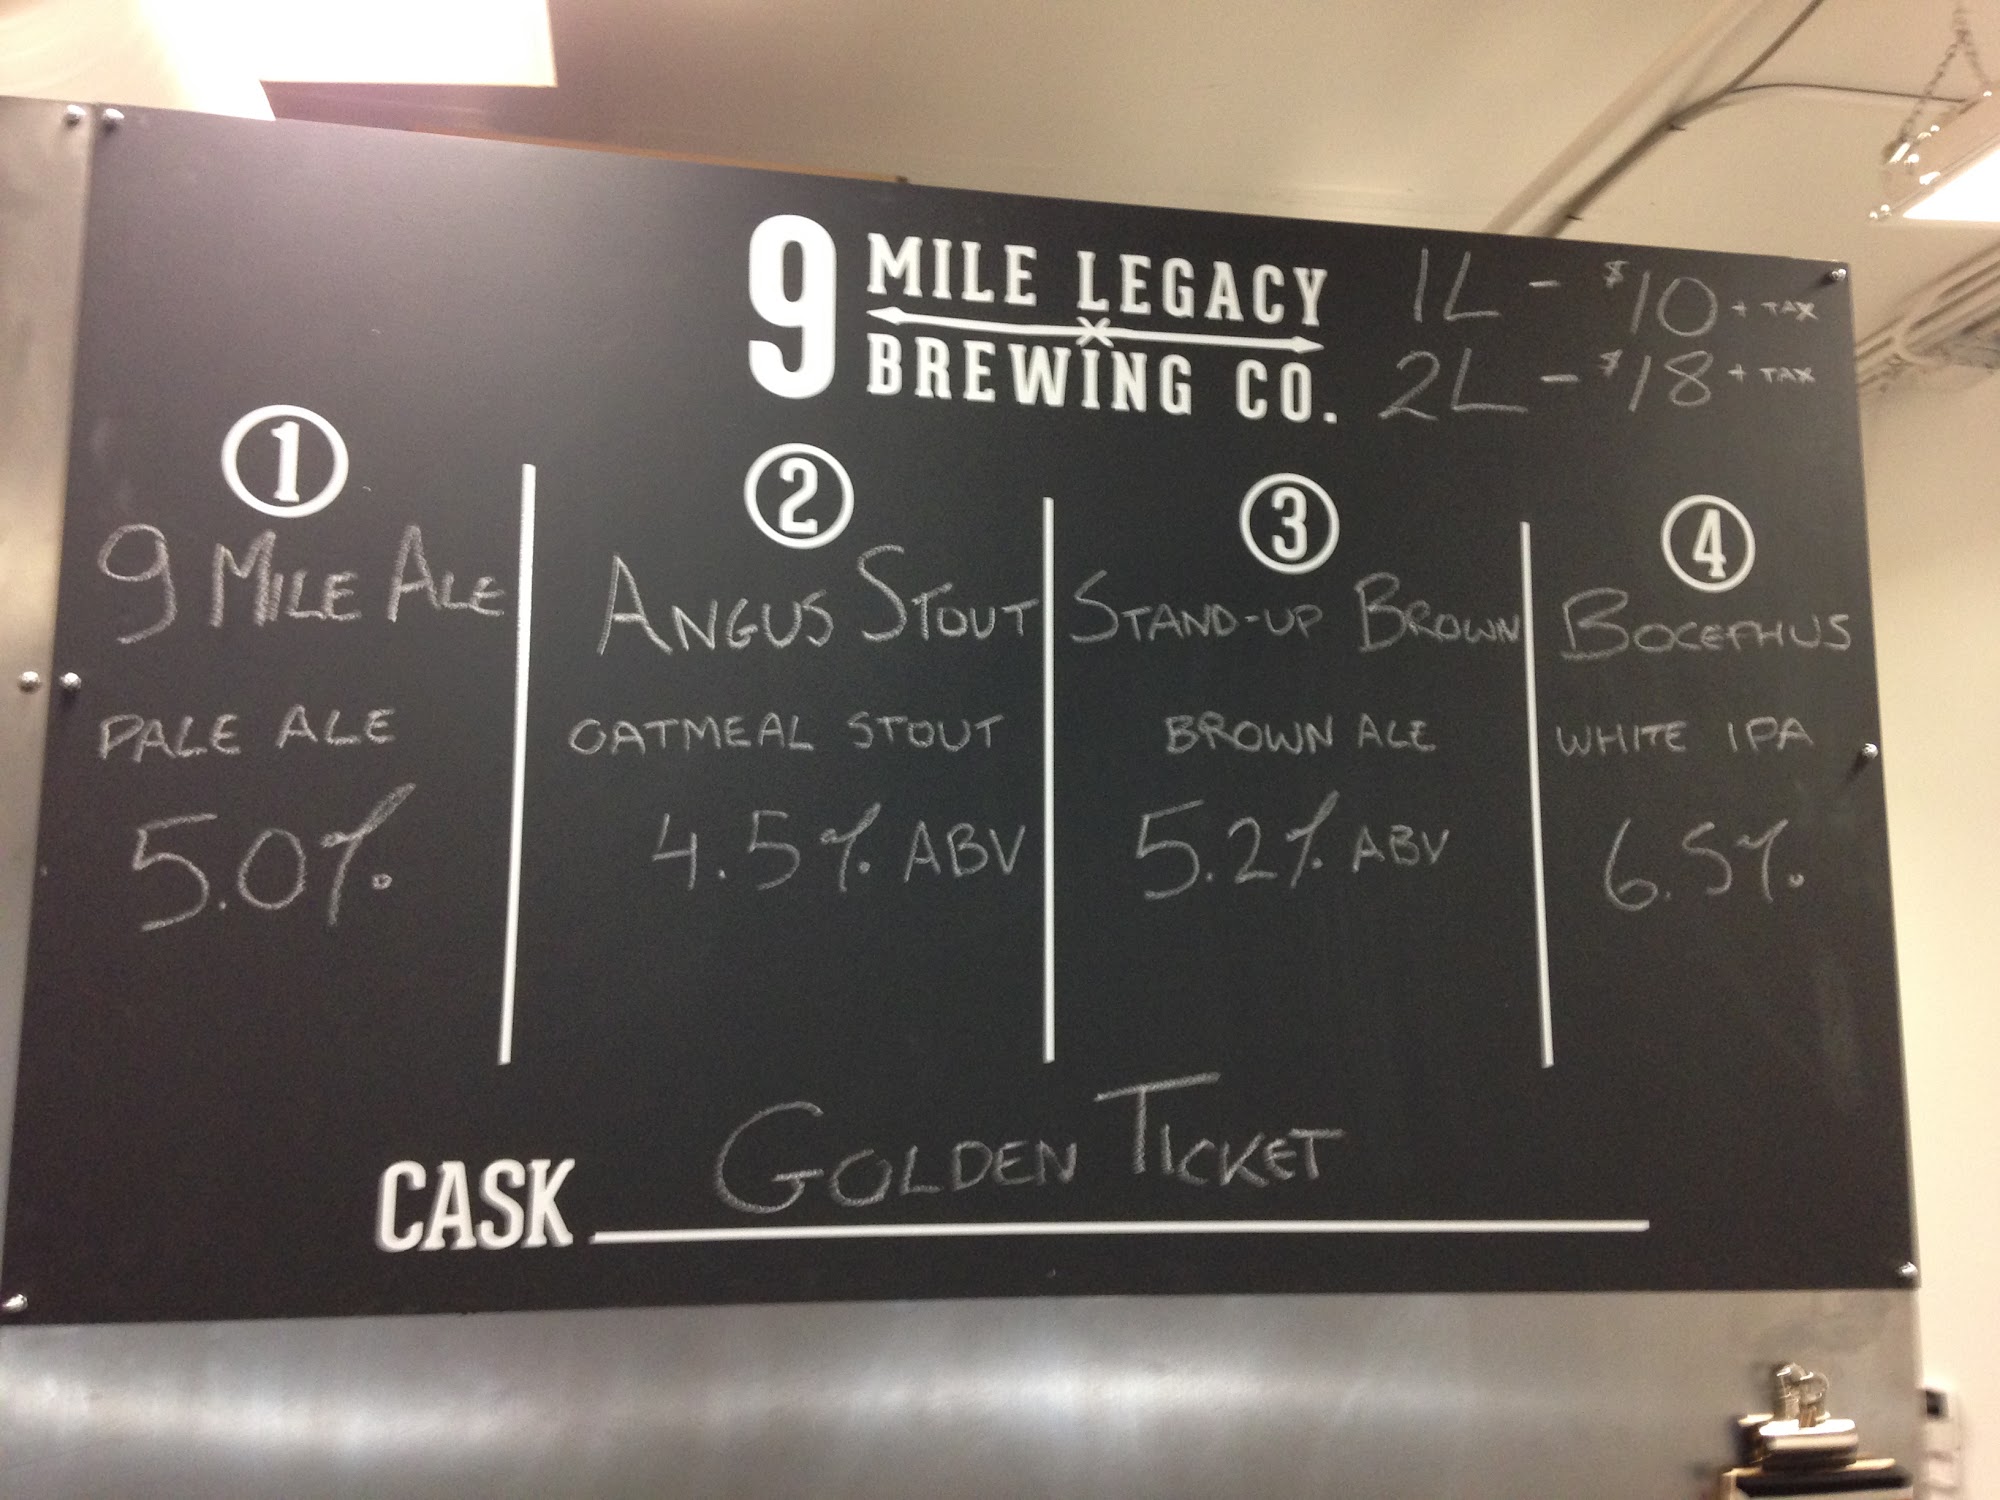 9 MILE LEGACY
BREWING CO.
1L - $10 + TAX
2L - $18 + TAX
1
9 MILE ALE
PALE ALE
5.0%
2
ANGUS STOUT
OATMEAL STOUT
4.5% ABV
3
STAND-UP BROWN
BROWN ALE
5.2% ABV
4
BOCEPHUS
WHITE IPA
6.5%
CASK GOLDEN TICKET